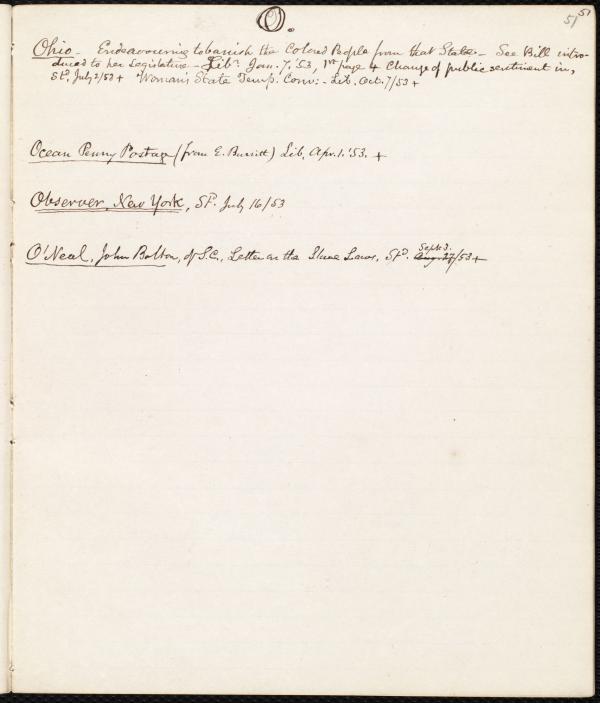 O.
51 51
Ohio - Endeavouring to banish the Colored People from that State. - See Bill intro-
duced to her Legislature - Libr. Jan. 7, '53, 1st page + Change of public sentiment in,
Std. July 2/53 + Woman's State Temp. Conv: - Lib. Oct. 7/53 +
Ocean Penny Postage (from E. Burritt) Lib. Apr. 1. '53. +
Observer, New York, Sd. July 16/53
O'Neal, John Bolton, of S.C., Letter on the Slave Laws, Std. Sept. 3. Aug. 27/53 +